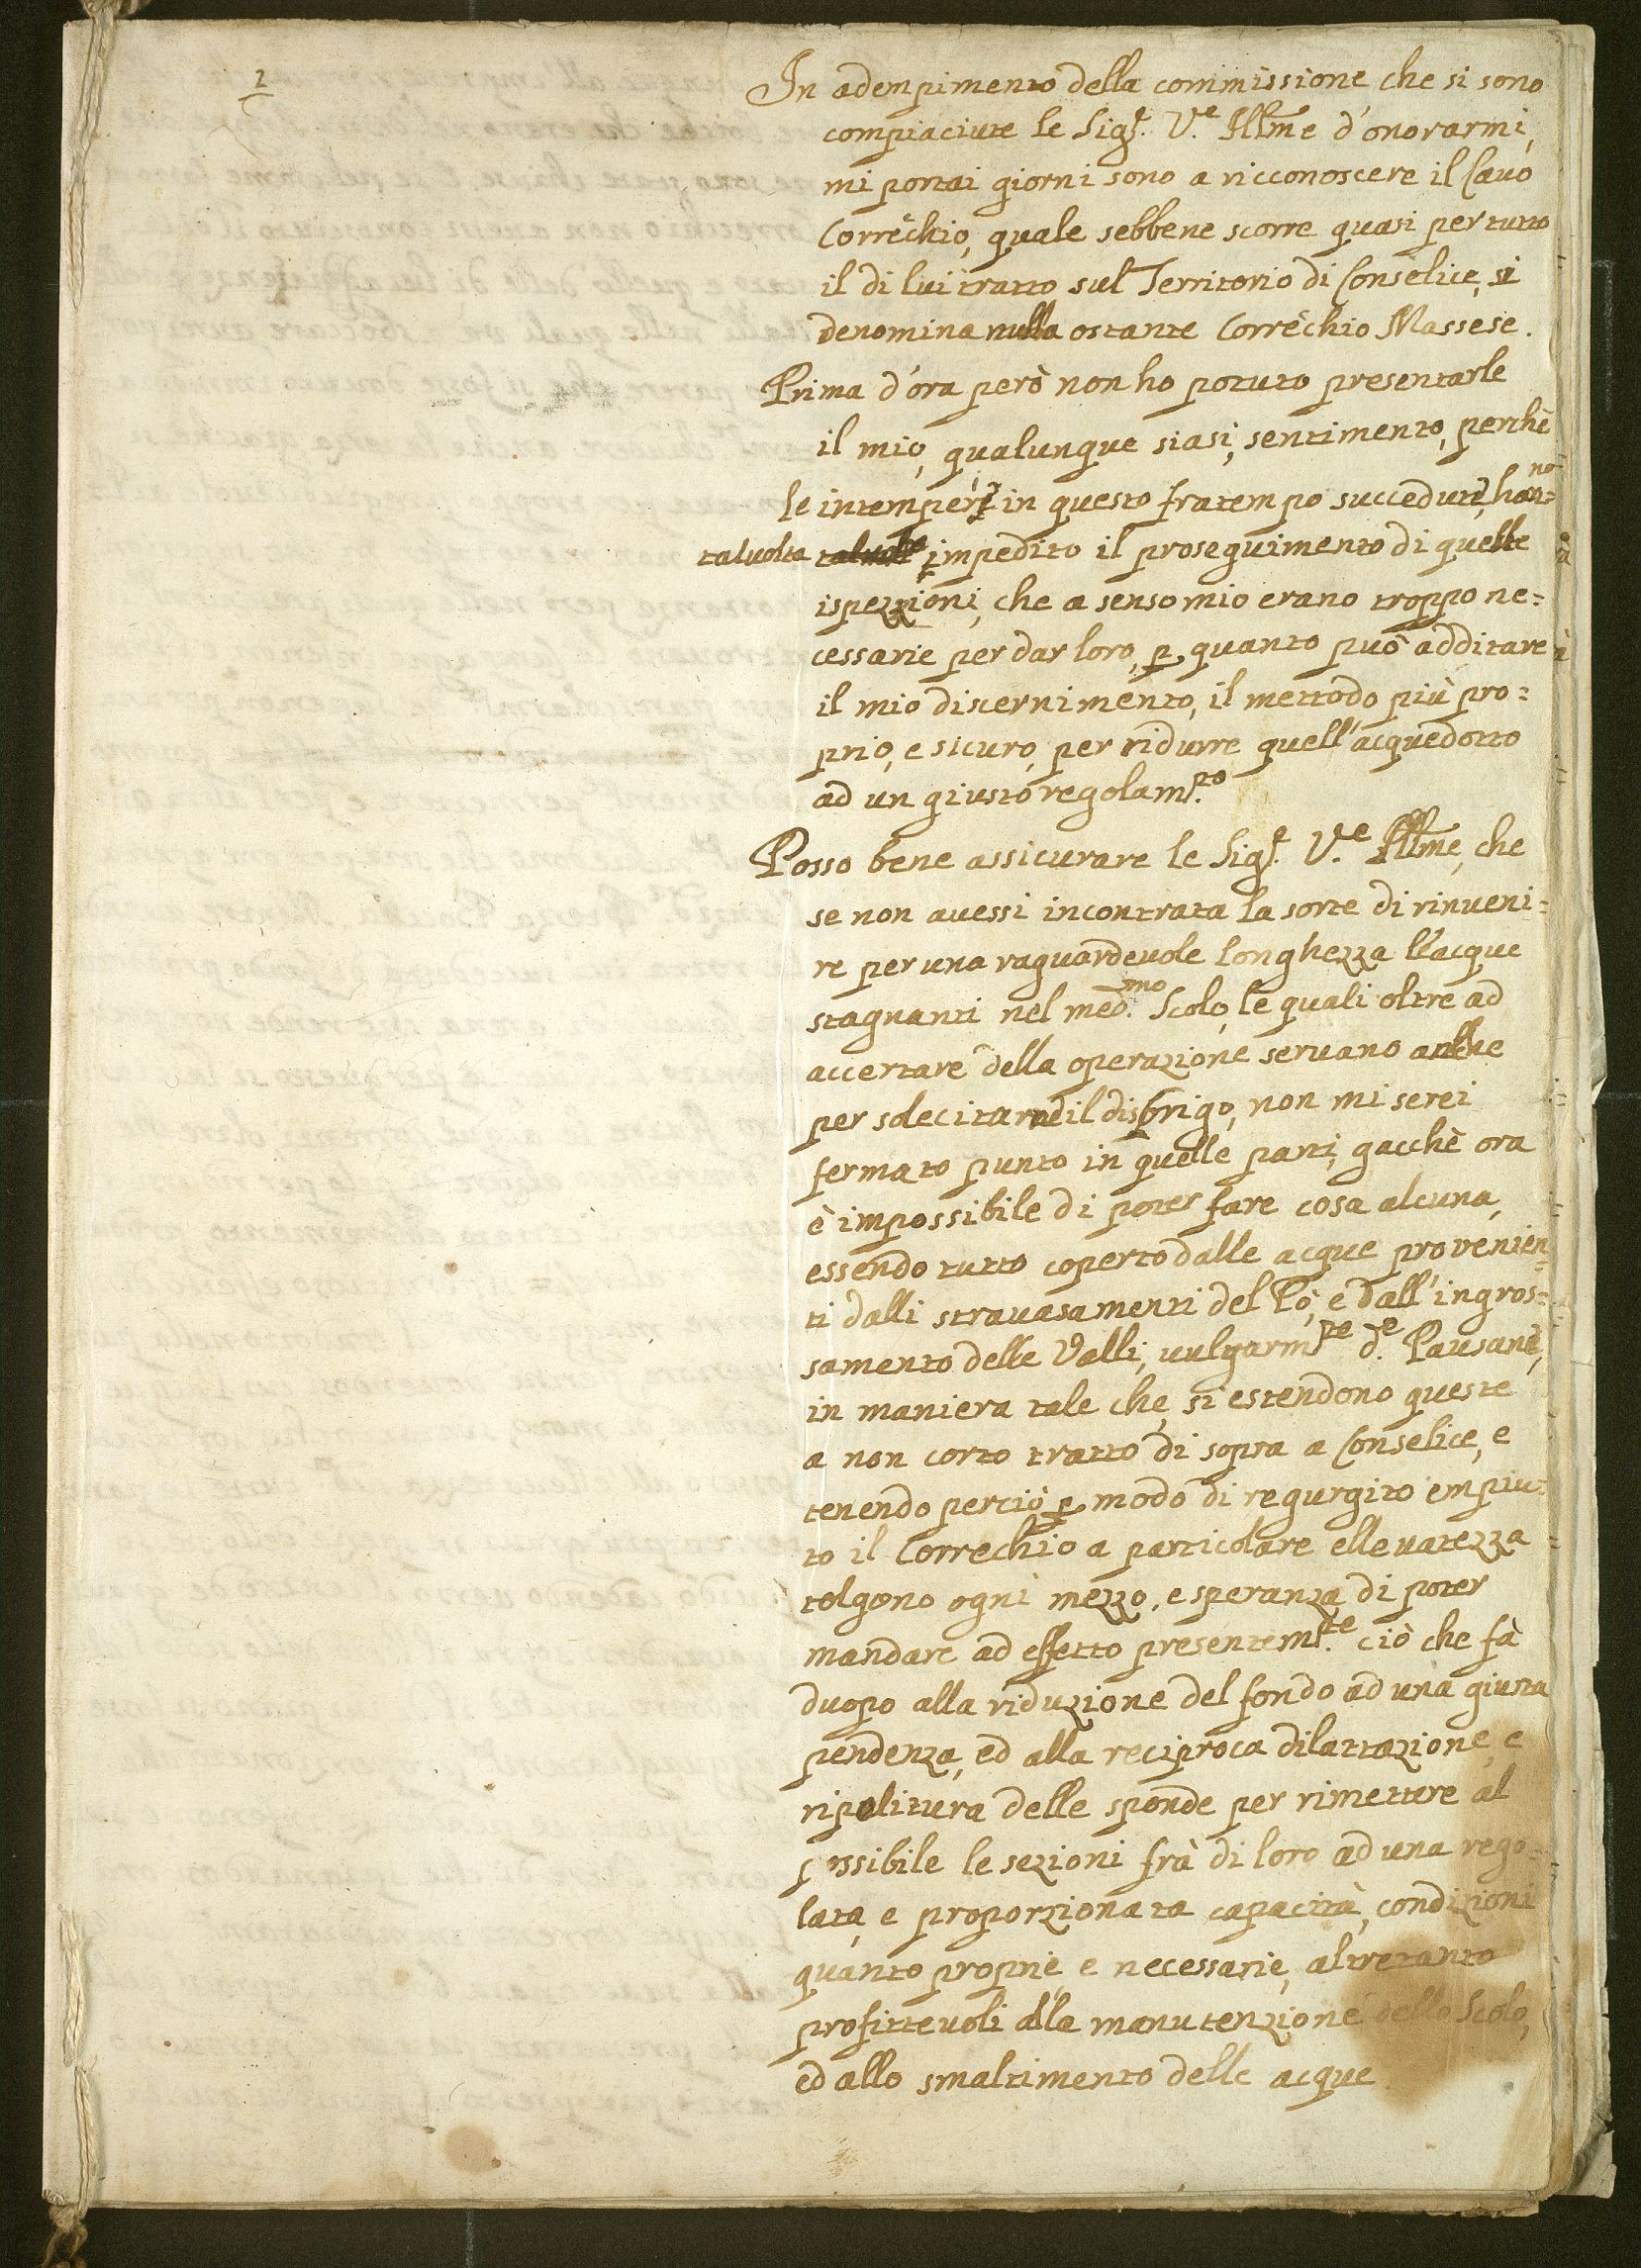 2
In adempimento della commissione che si sono
compiaciute le Sig.e V.e Illme d'onorarmi,
mi portai giorni sono a ricconoscere il Cavo
Corrêchio, quale sebbene scorre quasi per tutto
il di lui tratto sul Territorio di Conselice, si
denomina nulla ostante Corrêchio Massese.
Prima d'ora però non ho potuto presentarle
il mio, qualunque siasi, sentimento, perchè
le intemperie in questo fratempo succedute, han=no
talvolta impedito il proseguimento di quelle
ispezzioni, che a senso mio erano troppo ne=
cessarie per dar loro, p. quanto può additare
il mio discernimento, il mettodo più pro=
prio, e sicuro, per ridurre quell'acquedotto
ad un giusto regolam.to
Posso bene assicurare le Sig.e V.e Illme, che
se non avessi incontrata la sorte di rinveni=
re per una raguardevole longhezza l'acque
stagnanti nel med.mo Scolo, le quali oltre ad
accertare della operazione servano anche
per solecitarne il disbrigo, non mi serei
fermato punto in quelle parti, gacchè ora
è impossibile di poter fare cosa alcuna,
essendo tutto coperto dalle acque provenien=
ti dalli stravasamenti del Pò, e dall'ingros=
samento delle Valli, vulgarm.te d.e Pavsane,
in maniera tale che si estendono queste
a non corto tratto di sopra a Conselice, e
tenendo perciò p. modo di regurgito empiu=
to il Correchio a particolare ellevatezza
tolgono ogni mezzo, e speranza di poter
mandare ad effetto presentem.te ciò che fà
duopo alla riduzione del fondo ad una giusta
pendenza, ed alla reciproca dilattazione, e
ripolitura delle sponde per rimettere al
possibile le sezioni frà di loro ad una rego=
lata, e proporzionata capacità, condizioni
quanto proprie e necessarie, altretanto
profittevoli alla manutenzione dello Scolo,
ed allo smaltimento delle acque